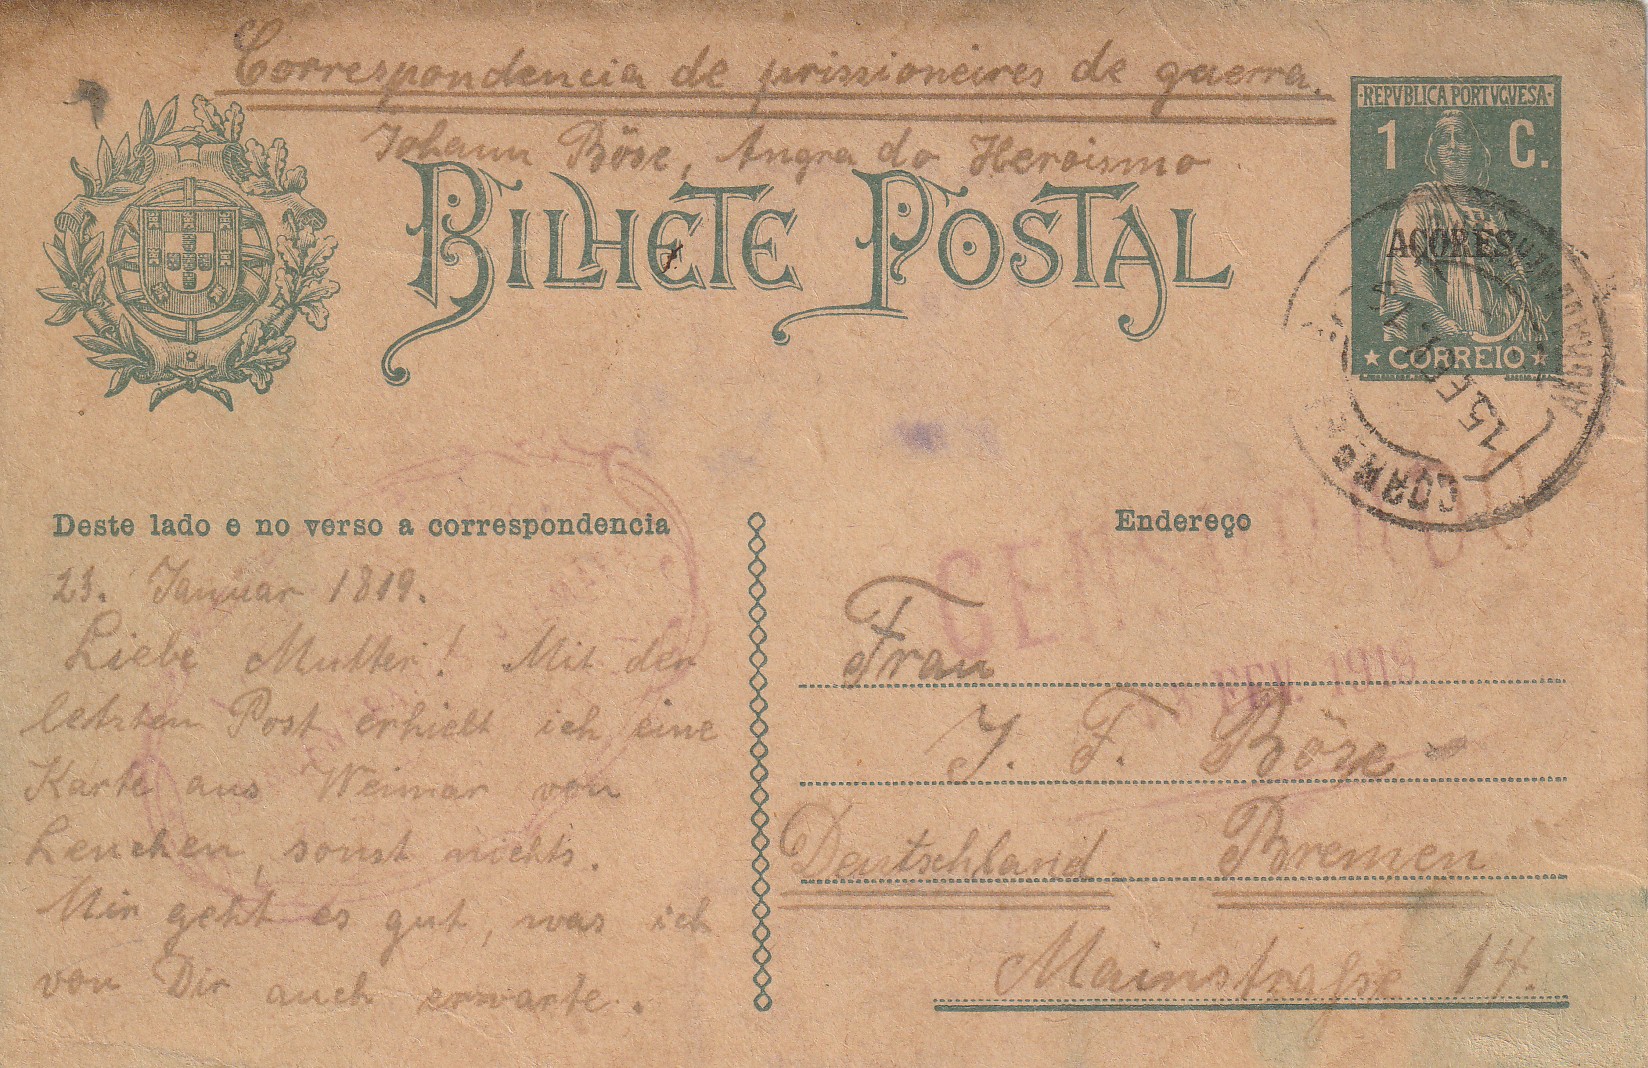 Correspondencia de prissioneires de guerra.
Johann Böse, Angra do Heroismo
BILHETE POSTAL
·REPVBLICA PORTVGVESA·
1 C.
AÇORES
CORREIO
15 FEV
Deste lado e no verso a correspondencia
Endereço
CENSURADO
FEV. 1919
23. Januar 1819.
Liebe Mutter! Mit der
letzten Post erhielt ich eine
Karte aus Weimar von
Lenchen, sonst nichts.
Mir geht es gut, was ich
von Dir auch erwarte.
Frau
J. F. Böse
Deutschland Bremen
Mainstraße 14.